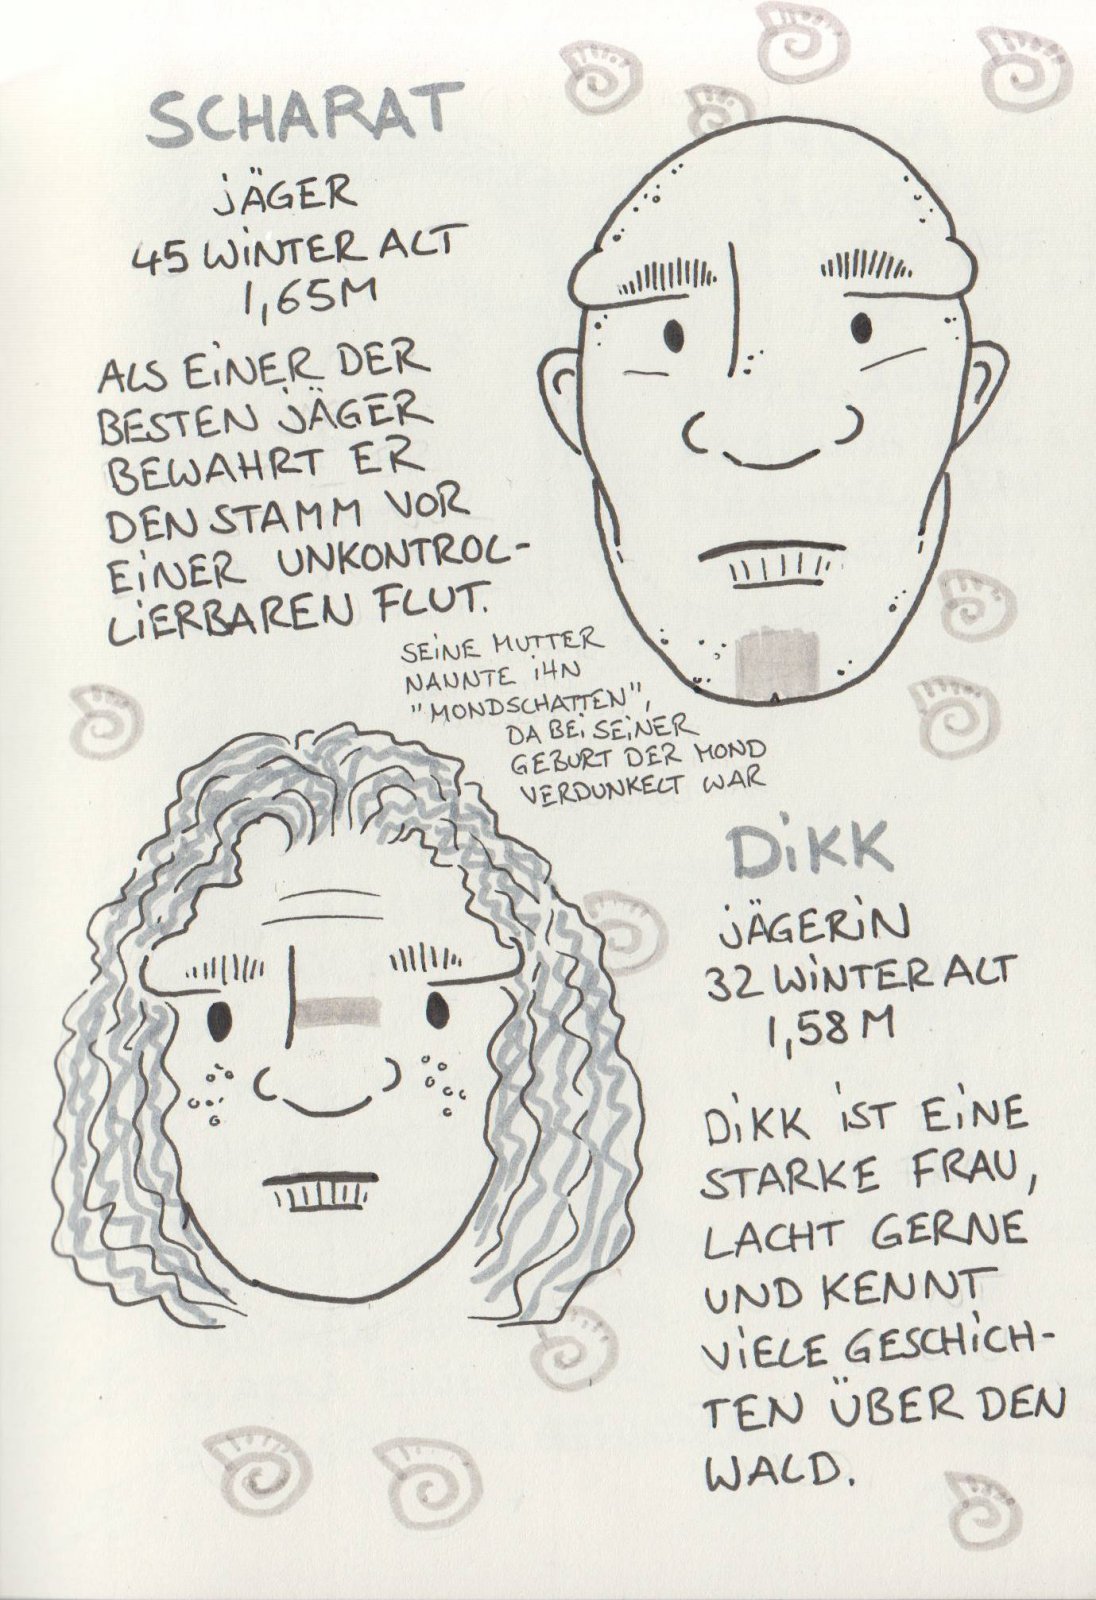 SCHARAT
JÄGER
45 WINTER ALT
1,65M
ALS EINER DER
BESTEN JÄGER
BEWAHRT ER
DEN STAMM VOR
EINER UNKONTROL-
LIERBAREN FLUT.
SEINE MUTTER
NANNTE IHN
"MONDSCHATTEN",
DA BEI SEINER
GEBURT DER MOND
VERDUNKELT WAR
DIKK
JÄGERIN
32 WINTER ALT
1,58M
DIKK IST EINE
STARKE FRAU,
LACHT GERNE
UND KENNT
VIELE GESCHICH-
TEN ÜBER DEN
WALD.